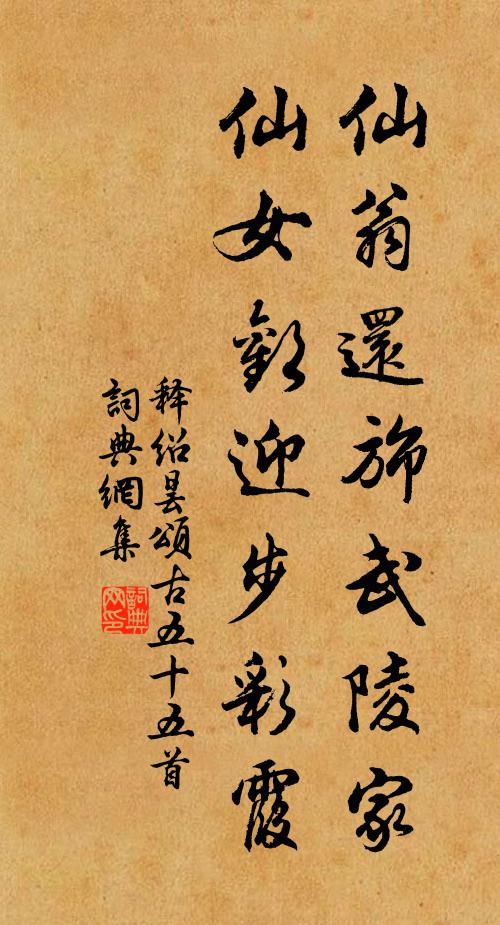 仙翁還旆武陵家
仙女歡迎步彩霞
释绍昙頌古五十五首
詞典網集
詞典网印